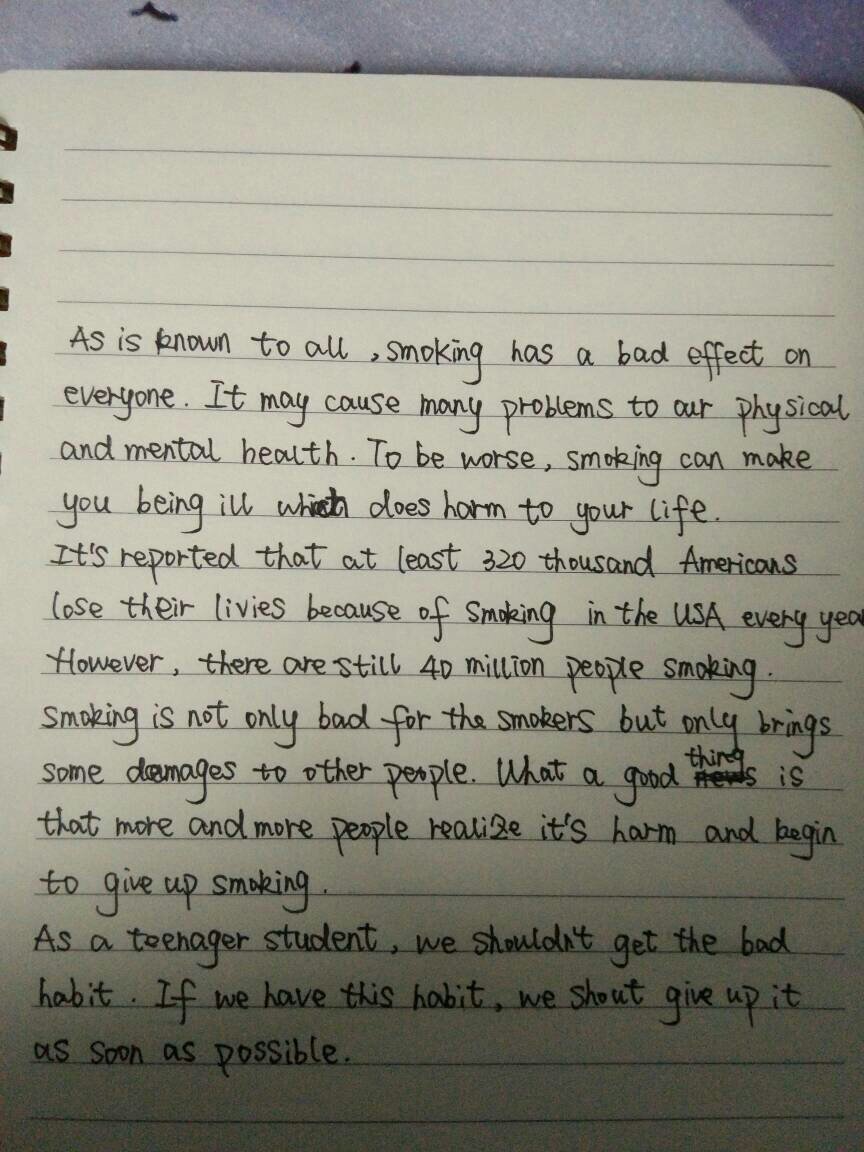 As is known to all, smoking has a bad effect on
everyone. It may cause many problems to our physical
and mental health. To be worse, smoking can make
you being ill which does harm to your life.
It's reported that at least 320 thousand Americans
lose their livies because of smoking in the USA every year
However, there are still 40 million people smoking.
smoking is not only bad for the smokers but only brings
some damages to other people. What a good thing is
that more and more people realize it's harm and begin
to give up smoking.
As a teenager student, we shouldn't get the bad
habit. If we have this habit, we shout give up it
as soon as possible.